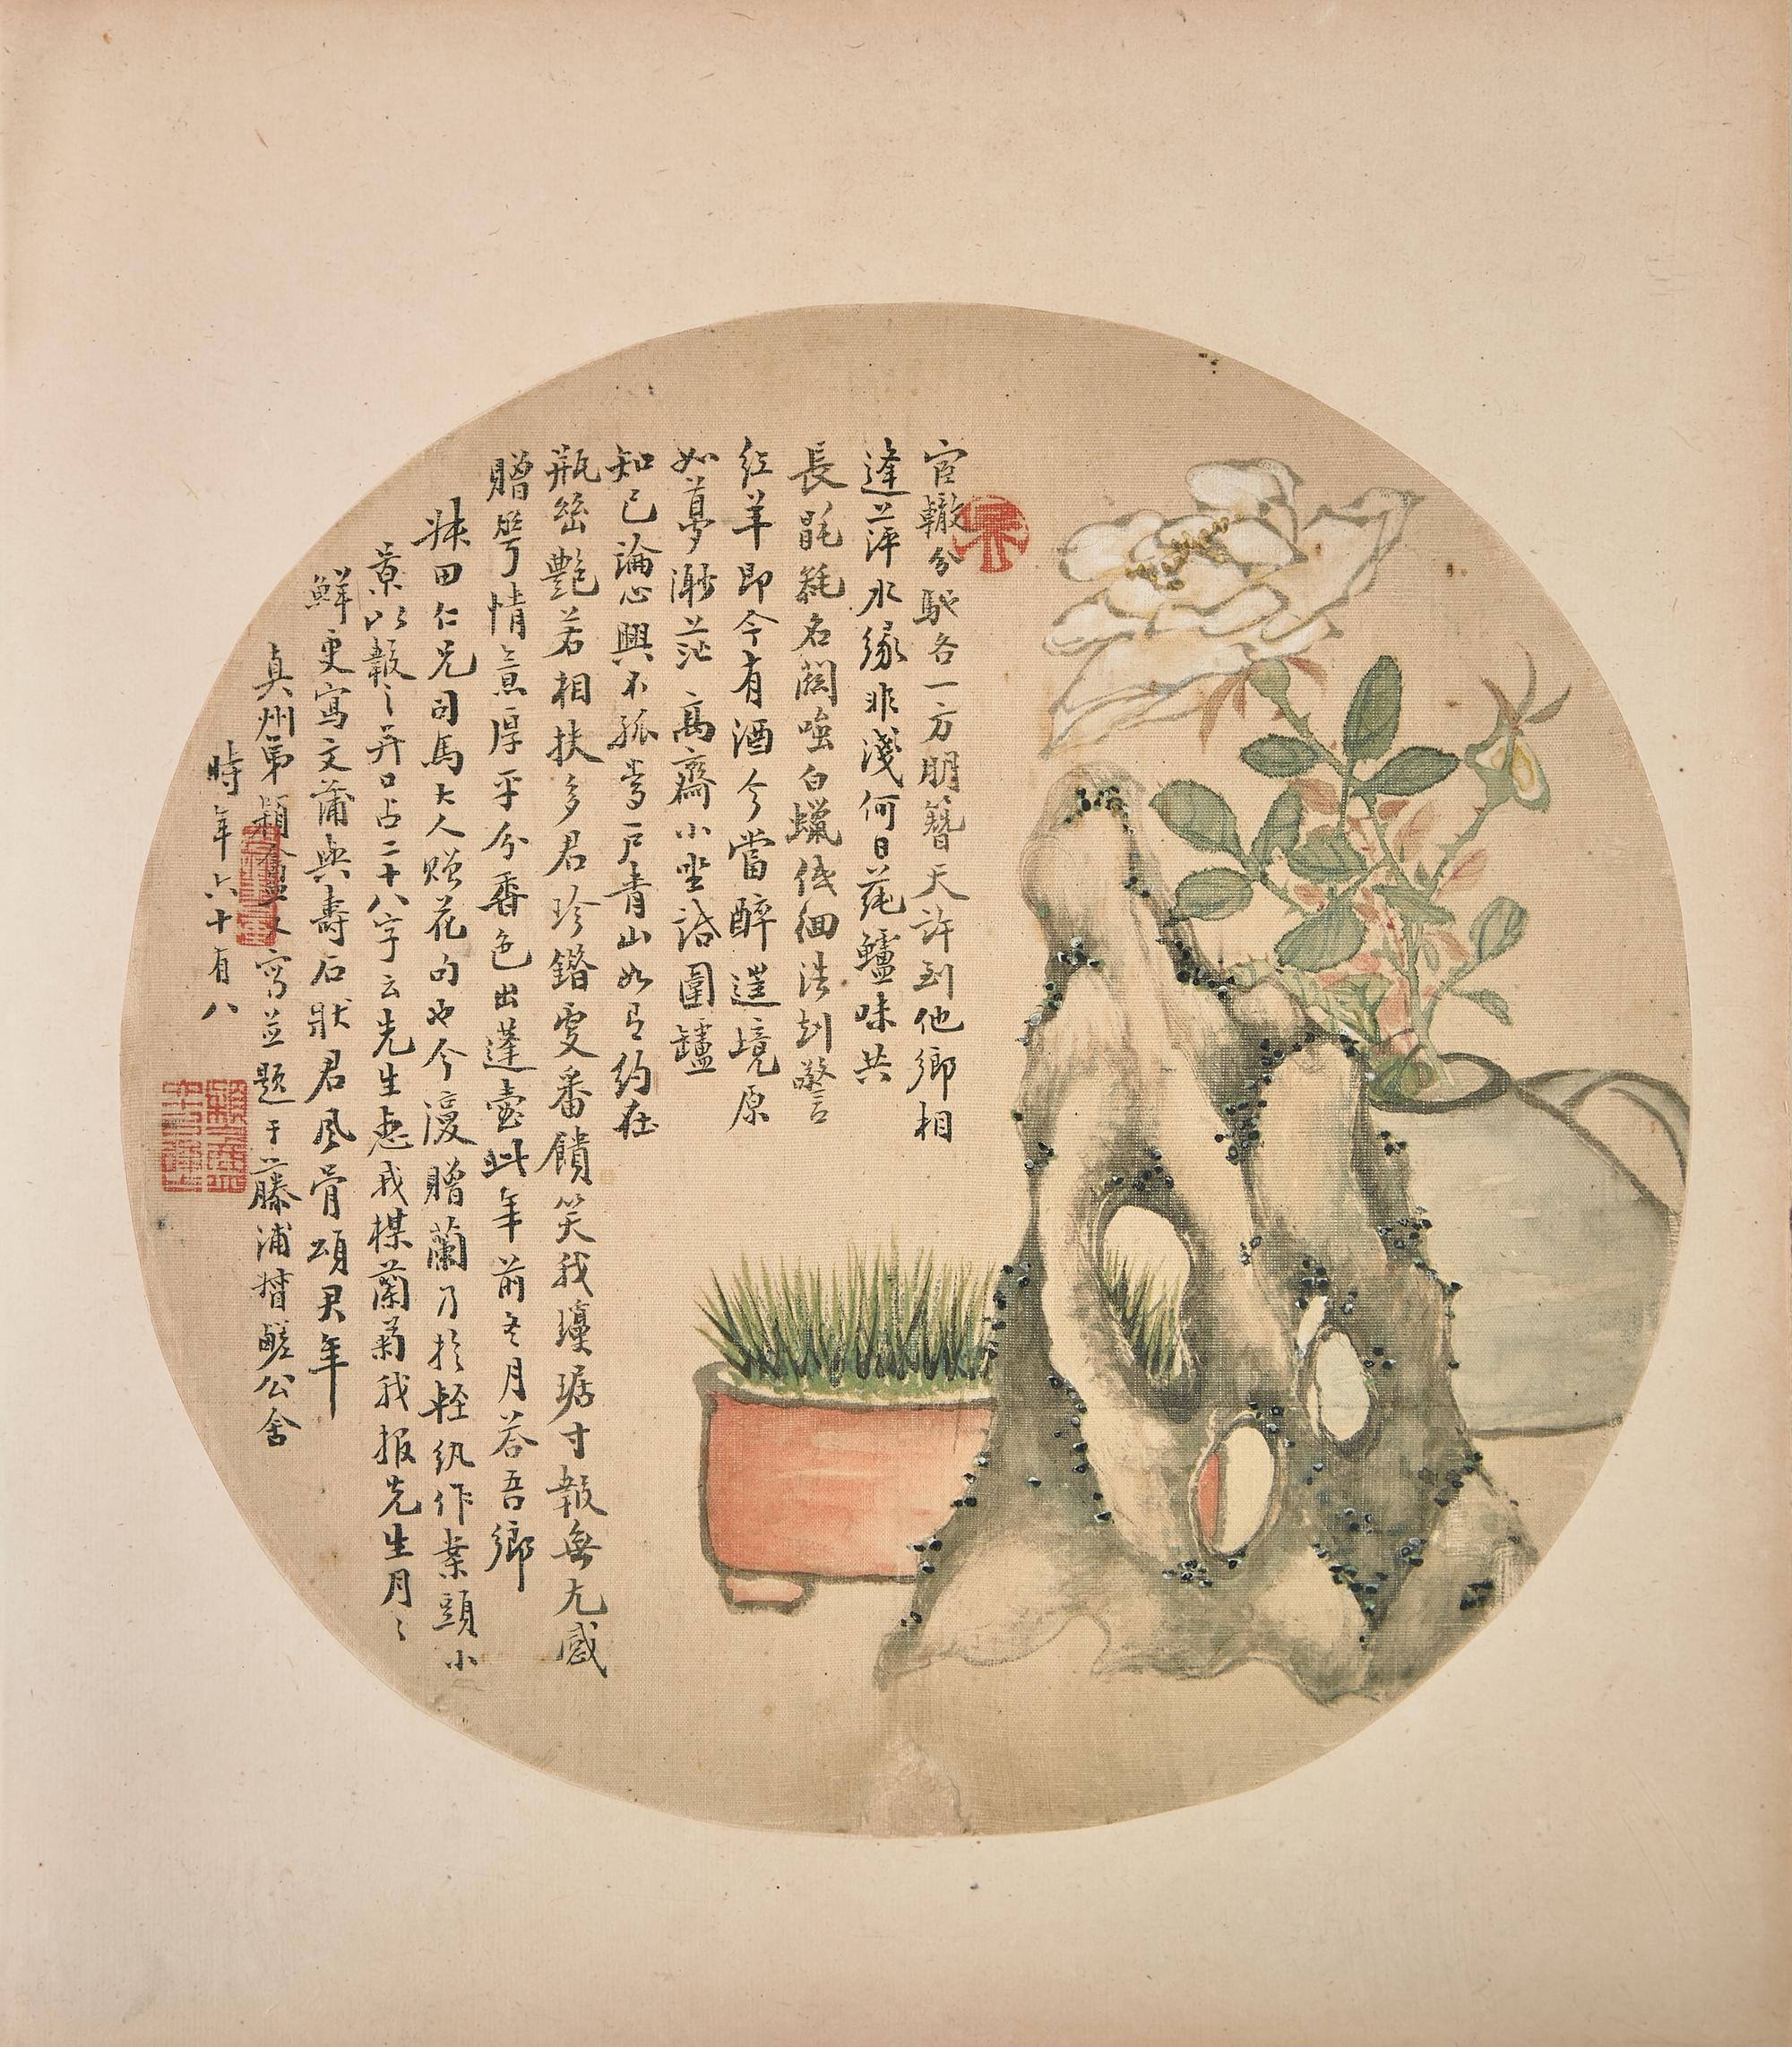 宦轍分馳各一方朋簪天許到他鄉相
逢萍水緣非淺何日蒓鱸味共
長毷毷名關嗤白蠟低徊浩刦警
紅羊即今有酒今當醉蓬境原
如夢渺茫高齋小坐話圍鑪
知己論心興不孤當戶青山如有約在
瓶豔若相扶多君珍錯雯番饋笑我瓊琚寸報無尤感
贈情意厚平分香色出蓬壺此年前冬月荅吾鄉
田仁兄司馬大人贈花句也今漫贈蘭乃於輕紈作案頭小
景以報之并口占二十八字云先生惠我楳蘭菊我报先生月月
鮮更寫文蒲與壽石狀君風骨頌君年
真州弟穎寫並題于藤浦榷鹺公舍
時年六十有八